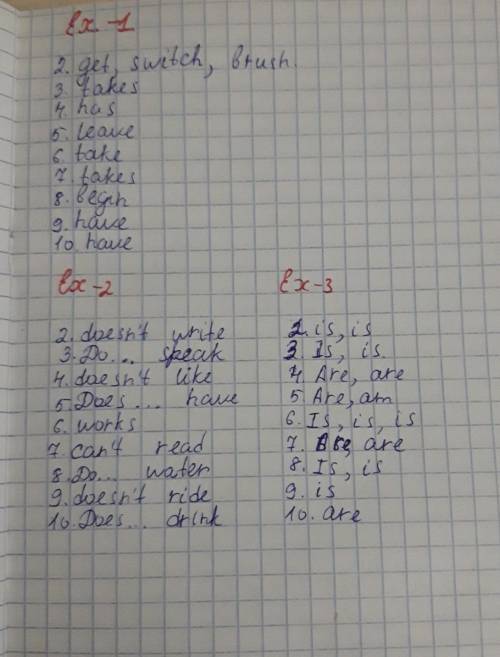 Ex-1
2. get, switch, brush.
3. takes
4. has
5. leave
6. take
7. takes
8. begin
9. have
10. have
Ex-2
2. doesn't write
3. Do... speak
4. doesn't like
5. Does... have
6. works
7. can't read
8. Do... water
9. doesn't ride
10. Does... drink
Ex-3
2. is, is
3. Is, is
4. Are, are
5. Are, am
6. Is, is, is
7. Are, are
8. Is, is
9. is
10. are